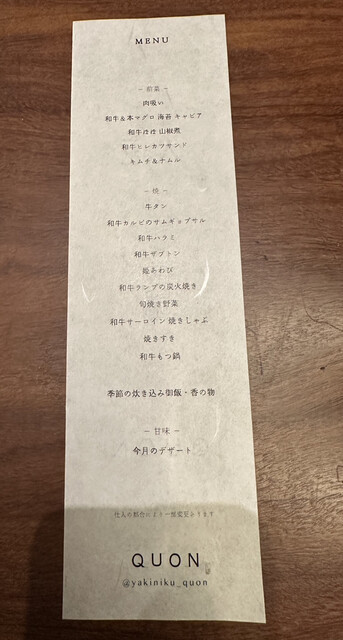 MENU
- 前菜 -
肉吸い
和牛&本マグロ 海苔 キャビア
和牛ほほ 山椒煮
和牛ヒレカツサンド
キムチ&ナムル
- 焼 -
牛タン
和牛カルビのサムギョプサル
和牛ハラミ
和牛ザブトン
姫あわび
和牛ランプの炭火焼き
旬焼き野菜
和牛サーロイン 焼きしゃぶ
焼きすき
和牛もつ鍋
季節の炊き込み御飯・香の物
- 甘味 -
今月のデザート
仕入の都合により一部変更あります
QUON
@yakiniku_quon